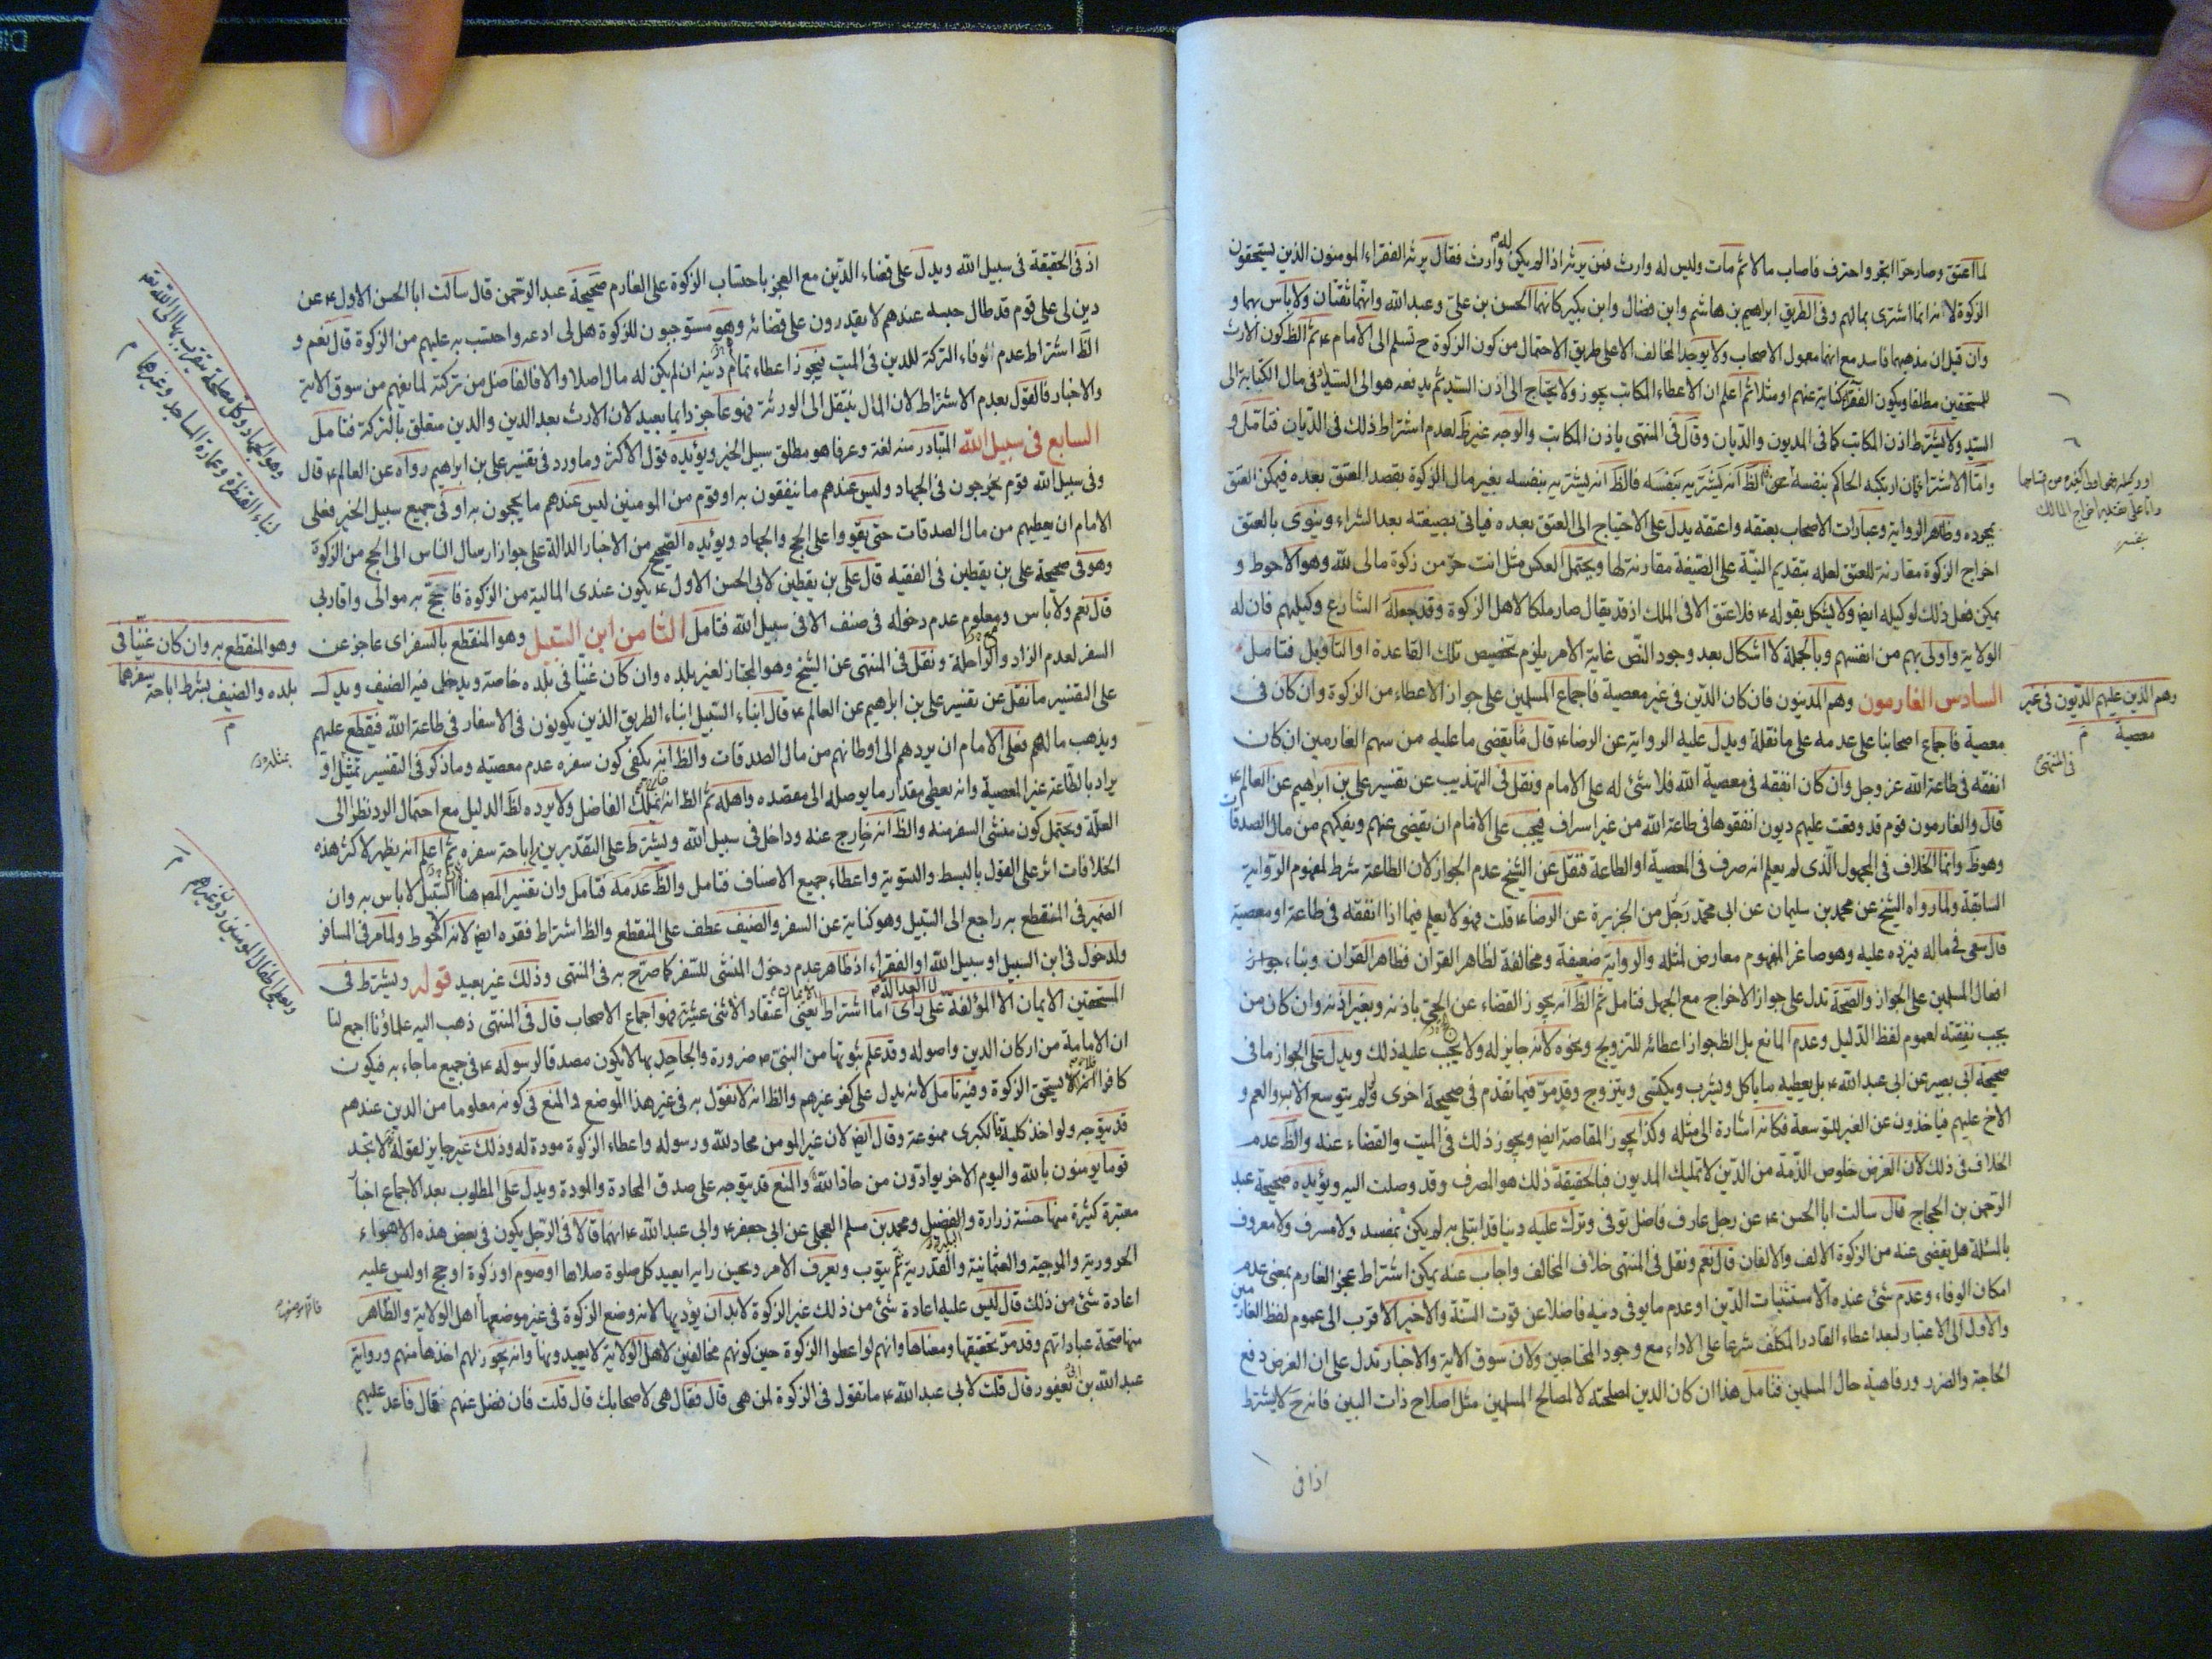 لما اعتق وصار حرا اتجر واحترف فاصاب مالا ثم مات وليس له وارث فمن يرثه اذا لم يكن له وارث فقال يرثه الفقراء المومنون الذين يستحقون
الزكوة لانه انما اشترى بمالهم وفى الطريق ابرهيم بن هاشم وابن فضال وابن بكير كانهما الحسن بن على وعبد الله وانهما ثقتان ولا باس بهما و
وان قيل ان مذهبهما فاسد مع انهما معمول الاصحاب ولا يوجد المخالف الا على طريق الاحتمال من كون الزكوة ح تسلم الى الامام ع ثم الظ كون الارث
للمستحقين مطلقا ويكون الفقراء كناية عنهم او مثلا ثم اعلم ان الاعطاء المكاتب يجوز ولا يحتاج الى اذن السيد ثم يدفعه هو الى السيد فى مال الكتابة الى
السيد ولا يشترط اذن المكاتب كما فى المديون والديان وقال فى المنتهى باذن المكاتب والوجه غير ظ لعدم اشتراط ذلك فى الديان فتامل و
واما الاشتراء فان ارتكبه الحاكم بنفسه الظ انه يشتريه بنفسه فالظ انه يشتريه بنفسه بغير مال الزكوة بقصد العتق بعده فيمكن العتق
بمجرده وظاهر الرواية وعبارات الاصحاب بعتقه واعتقه يدل على الاحتياج الى العتق بعده فياتى بصيغته بعد الشراء وينوى بالعتق
اخراج الزكوة مقارنة للعتق لعله بتقديم النية على الصيغة مقارنة لها ويحتمل العكس مثل انت حر من زكوة مالى لله وهو الاحوط و
يمكن فعل ذلك لوكيله ايض ولا يشكل بقوله ع فلا عتق الا فى الملك اذ قد يقال صار ملكا لاهل الزكوة وقد جعله الشارع وكيلهم فان له
الولاية واولى بهم من انفسهم وبالجملة لا اشكال بعد وجود النص غاية الامر يلزم تخصيص تلك القاعدة او التاويل فتامل
السادس الغارمون وهم المدينون فان كان الدين فى غير معصية فاجماع المسلمين على جواز الاعطاء من الزكوة وان كان فى
معصية فاجماع اصحابنا على عدمه على ما نقله ويدل عليه الرواية عن الرضاء ع قال ما يقضى ما عليه من سهم الغارمين ان كان
انفقه فى طاعة الله عز وجل وان كان انفقه فى معصية الله فلا شئ له على الامام ونقل فى التهذيب عن تفسير على بن ابرهيم عن العالم ع
قال والغارمون قوم قد وقعت عليهم ديون انفقوها فى طاعة الله من غير اسراف فيجب على الامام ان يقضى عنهم ويفكهم من مال الصدقات
وهو ظ وانما الخلاف فى المجهول الذى لم يعلم انه صرف فى المعصية او الطاعة فنقل عن الشيخ عدم الجواز لان الطاعة شرط لمفهوم الرواية
السابقة ولما رواه الشيخ عن محمد بن سليمان عن ابى محمد رجل من الجزيرة عن الرضاء ع قلت فهو لا يعلم فيما اذا انفقه فى طاعة او معصية
قال يسعى فى ماله فيرده عليه وهو صاغر المفهوم معارض لمثله والرواية ضعيفة ومخالفة لظاهر القران فظاهر القران وبناء جواز
افعال المسلمين على الجواز والصحة تدل على جواز الاخراج مع الجهل فتامل ثم الظ انه يجوز القضاء عن الحى باذنه وبغير اذنه وان كان من
يجب نفقته لعموم لفظ الدليل وعدم المانع بل الظ جواز اعطائه للتزويج ونحوه لانه جايز له ولا يجب عليه ذلك ويدل على الجواز ما فى
صحيحة ابى بصير عن ابى عبد الله ع بل يعطيه ما ياكل ويشرب ويكتسى ويتزوج وقد مر فيما تقدم فى صحيحة اخرى ولم يتوسع الاب والعم و
الاخ عليهم فياخذون عن الغير للتوسعة فكانه اشارة الى مثله وكذا يجوز المقاصة ايض ويجوز ذلك فى الميت والقضاء عنه والظ عدم
الخلاف فى ذلك لان الغرض خلوص الذمة من الدين لا تمليك المديون فبالحقيقة ذلك هو المصرف وقد وصلت اليه ويؤيده صحيحة عبد
الرحمن بن الحجاج قال سالت ابا الحسن ع عن رجل عارف فاضل توفى وترك عليه دينا قد ابتلى به لم يكن بمفسد ولا مسرف ولا معروف
بالمسئلة هل يقضى عنه من الزكوة الالف والالفان قال نعم ونقل فى المنتهى خلاف المخالف واجاب عنه يمكن اشتراط عجز الغارم بمعنى عدم
امكان الوفاء وعدم شئ عنده الا مستثنيات الدين او عدم ما يوفى دينه فاضلا عن قوت السنة والاخير الاقرب الى عموم لفظ الغارمين
والاول الى الاعتبار لبعد اعطاء القادر المكلف شرعا على الاداء مع وجود المحتاجين ولان سوق الاية والاخبار تدل على ان الغرض دفع
الحاجة والضرر ورفاهية حال المسلمين فتامل هذا ان كان الدين لمصلحته لا لمصالح المسلمين مثل اصلاح ذات البين فانه ح لا يشترط
اذ فى
وهم الذين عليهم الديون فى غير
معصية م
فى المنتهى
اذ فى الحقيقة فى سبيل الله ويدل على قضاء الدين مع العجز باحتساب الزكوة على الغارم صحيحة عبد الرحمن قال سالت ابا الحسن الاول ع عن
دين لى على قوم قد طال حبسه عندهم لا يقدرون على قضائه وهو مستوجبون للزكوة هل لى ادعه واحتسب به عليهم من الزكوة قال نعم و
الظ اشتراط عدم الوفاء التركة للدين فى الميت فيجوز اعطاء تمام دينه ان لم يكن له مال اصلا والا فالفاضل من تركته لما يفهم من سوق الاية
والاخبار فالقول بعدم الاشتراط لان المال ينتقل الى الورثة فهو عاجز دايما بعيد لان الارث بعد الدين والدين متعلق بالتركة فتامل
السابع فى سبيل الله المتبادر منه لغة وعرفا هو مطلق سبيل الخير ويؤيده قول الاكثر وما ورد فى تفسير على بن ابراهيم رواه عن العالم ع قال
وفى سبيل الله قوم يخرجون فى الجهاد وليس عندهم ما ينفقون به او قوم من المومنين ليس عندهم ما يحجون به او فى جميع سبيل الخير فعلى
الامام ان يعطيهم من مال الصدقات حتى يقووا على الحج والجهاد ويؤيده الصحيح من الاخبار الدالة على جواز ارسال الناس الى الحج من الزكوة
وهو فى صحيحة على بن يقطين فى الفقيه قال على بن يقطين لابى الحسن الاول ع يكون عندى المالية من الزكوة فاحج به موالى واقاربى
قال نعم ولا باس ومعلوم عدم دخوله فى صنف الا فى سبيل الله فتامل الثامن ابن السبيل وهو المنقطع بالسفر اى عاجز عن
السفر لعدم الزاد والراحلة ونقل فى المنتهى عن الشيخ وهو المجتاز لغير بلده وان كان غنيا فى بلده خاصة ويدخل فيه الضيف ويدل
على التفسير ما نقل عن تفسير على بن ابراهيم عن العالم ع قال ابناء السبيل ابناء الطريق الذين يكونون فى الاسفار فى طاعة الله فيقطع عليهم
ويذهب مالهم فعلى الامام ان يردهم الى اوطانهم من مال الصدقات والظ انه يكفى كون سفره عدم معصيته وما ذكر فى التفسير تمثيل او
يراد بالطاعة غير المعصية وانه يعطى مقدار ما يوصله الى مقصده واهله ثم الظ انه يملك الفاضل ولا يرده لظ الدليل مع احتمال الرد نظر الى
العلة ويحتمل كون منشئ السفر منه والظ انه خارج عنه وداخل فى سبيل الله ويشترط على التقديرين اباحة سفره ثم اعلم انه يظهر لاكثر هذه
الخلافات اثر على القول بالبسط والتسوية واعطاء جميع الاصناف فتامل والظ عدمه فتامل وان تفسير المص هنا السبيل لا باس به وان
الضمير فى المنقطع به راجع الى السبيل وهو كناية عن السفر والضيف عطف على المنقطع والظ اشتراط فقره ايض لانه الاحوط ولما مر فى المسافر
ولدخول فى ابن السبيل او سبيل الله او الفقراء اذ ظاهر عدم دخول المنشى للسفر كما صرح به فى المنتهى وذلك غير بعيد قوله ويشترط فى
المستحقين الايمان الا المؤلفة على راى اما اشتراط الايمان يعنى اعتقاد الاثنى عشرية فهو اجماع الاصحاب قال فى المنتهى ذهب اليه علماؤنا اجمع لنا
ان الامامة من اركان الدين واصوله وقد علم ثبوتها من النبى ص ضرورة والجاحد بها لا يكون مصدقا لرسوله ع فى جميع ما جاء به فيكون
كافرا فلا يستحق الزكوة وفيه تامل لانه يدل على كفر غيرهم والظ انه لا نقول به فى غير هذا الموضع والمنع فى كونه معلوما من الدين عندهم
قد يتوجه ولو اخذ كلية فالكبرى ممنوعة وقال ايض لان غير المومن محاد لله ورسوله واعطاء الزكوة مودة له وذلك غير جايز لقوله تع لا تجد
قوما يومنون بالله واليوم الاخر يوادون من حاد الله والمنع قد يتوجه على صدق المحادة والمودة ويدل على المطلوب بعد الاجماع اخبار
معتبرة كثيرة منها حسنة زرارة والفضيل ومحمد بن مسلم العجلى عن ابى جعفر ع وابى عبد الله ع انهما قالا فى الرجل يكون فى بعض هذه الاهواء
الحرورية والمرجئة والعثمانية والقدرية ثم يتوب ويعرف الامر ويحسن رايه ايعيد كل صلوة صلاها او صوم او زكوة او حج او ليس عليه
اعادة شئ من ذلك قال ليس عليه اعادة شئ من ذلك غير الزكوة لا بد ان يؤديها لانه وضع الزكوة فى غير موضعها اهل الولاية والظاهر
منها صحة عباداتهم وقد مر تحقيقها ومعناها وانهم لو اعطوا الزكوة حين كونهم مخالفين لاهل الولاية لا يعيدونها وانه يجوز لهم اخذها منهم ورواية
عبد الله بن ابى يعفور قال قلت لابى عبد الله ع ما تقول فى الزكوة لمن هى قال فقال هى لاصحابك قال قلت فان فضل عنهم قال فاعد عليهم
وهو الجهاد وكل مصلحة يتقرب بها الى الله تعه
كبناء القنطرة وعمارة المساجد وغيرهما م
وهو المنقطع به وان كان غنيا فى
بلده والضيف بشرط اباحة سفرهما
م
ويعطى اطفال المومنين دون غيرهم م